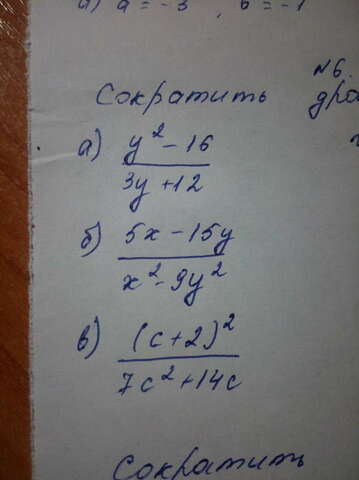 а) a = -3, b = -1
№6.
Сократить дро
а) y² - 16
3y + 12
б) 5x - 15y
x² - 9y²
в) (c+2)²
7c² + 14c
Сократить